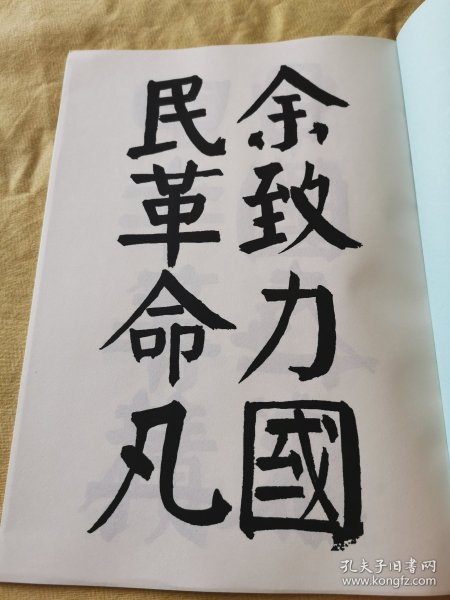 余致力國
民革命凡
孔夫子旧书网
www.kongfz.com